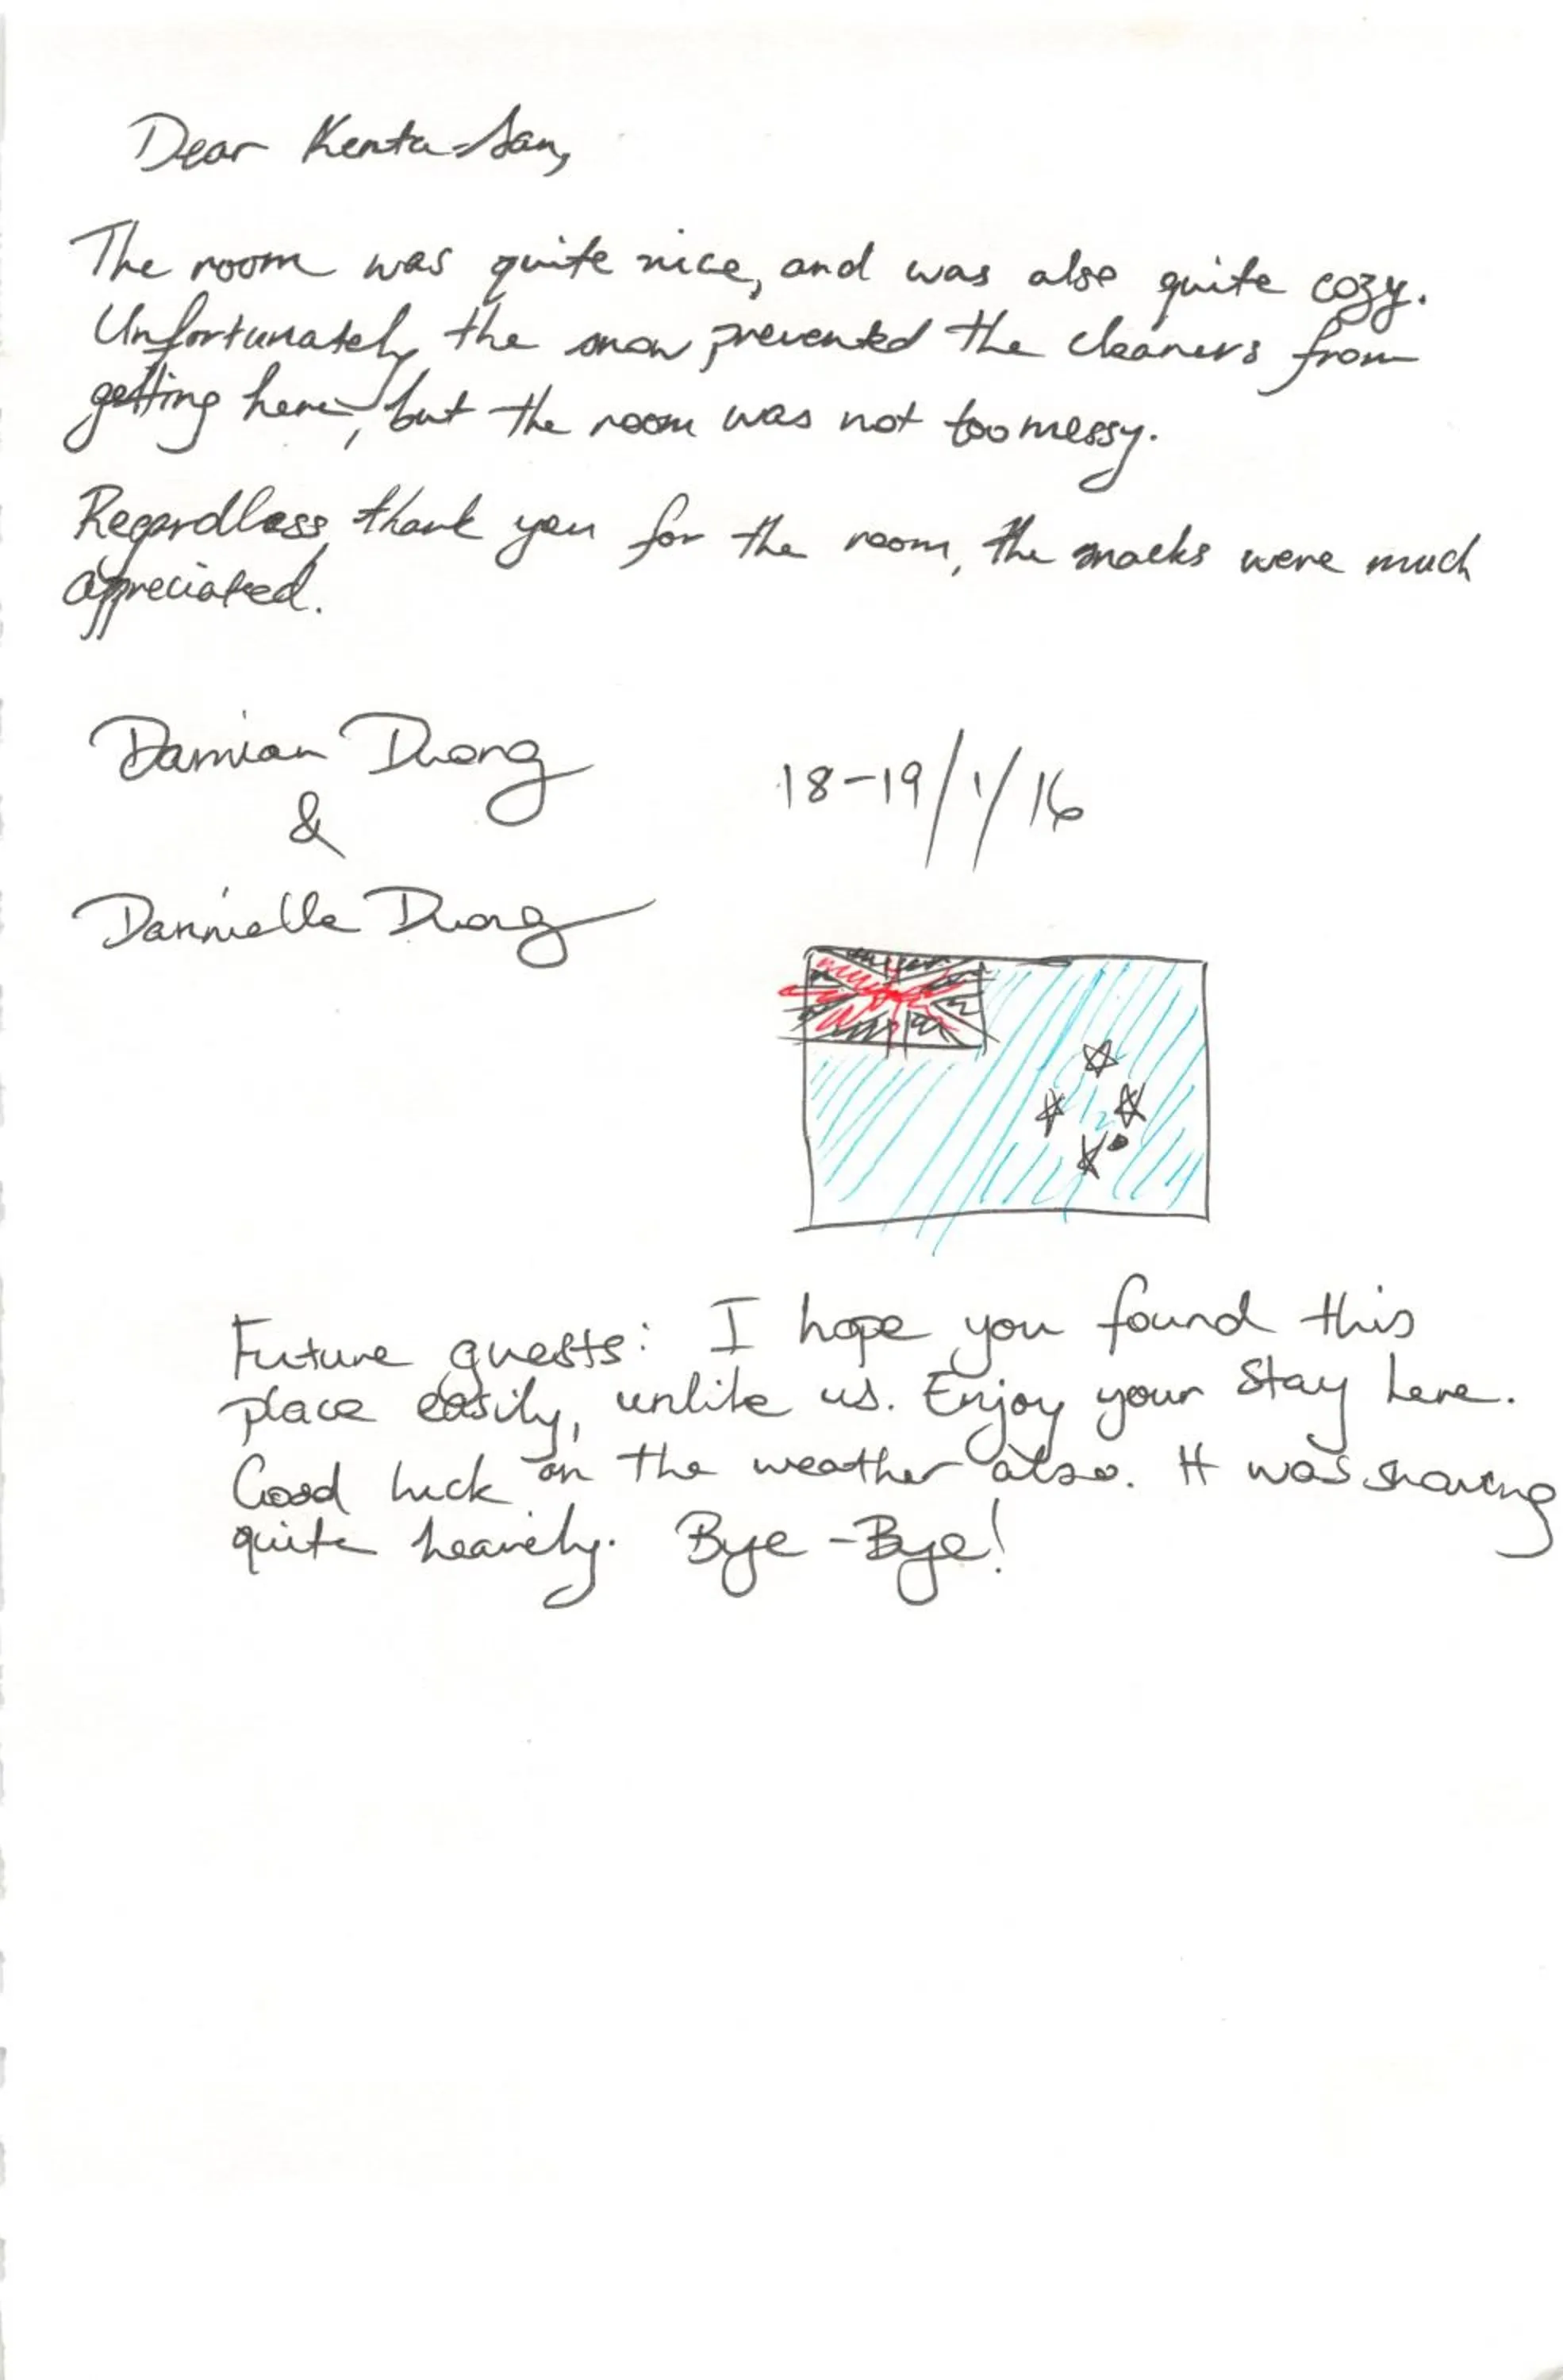 Dear Kenta-San,
The room was quite nice, and was also quite cozy.
Unfortunately the snow prevented the cleaners from
getting here, but the room was not too messy.
Regardless thank you for the room, the snacks were much
appreciated.
Damian Duong
&
Dannielle Duong
18-19/1/16
Future guests: I hope you found this
place easily, unlike us. Enjoy your stay here.
Good luck on the weather also. It was snowing
quite heavily. Bye-Bye!